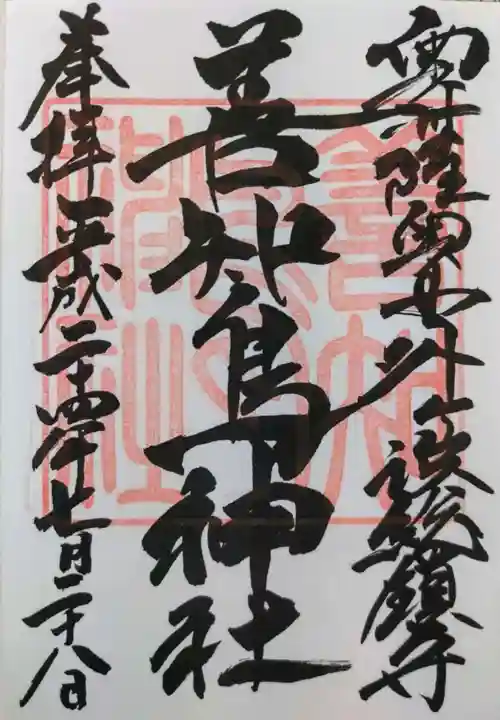 奥州陸奥国外ヶ浜総鎮守
善知鳥神社
奉拝 平成二十四年七月二十八日
善知鳥神社